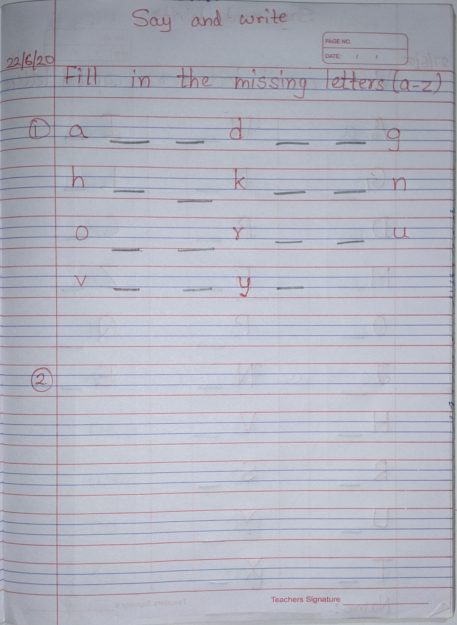 Say and write
PAGE NO.
DATE: / /
22/6/20
Fill in the missing letters (a-z)
① a __ __ d __ __ g
h __ __ k __ __ n
o __ __ r __ __ u
v __ __ y __
②
Teachers Signature